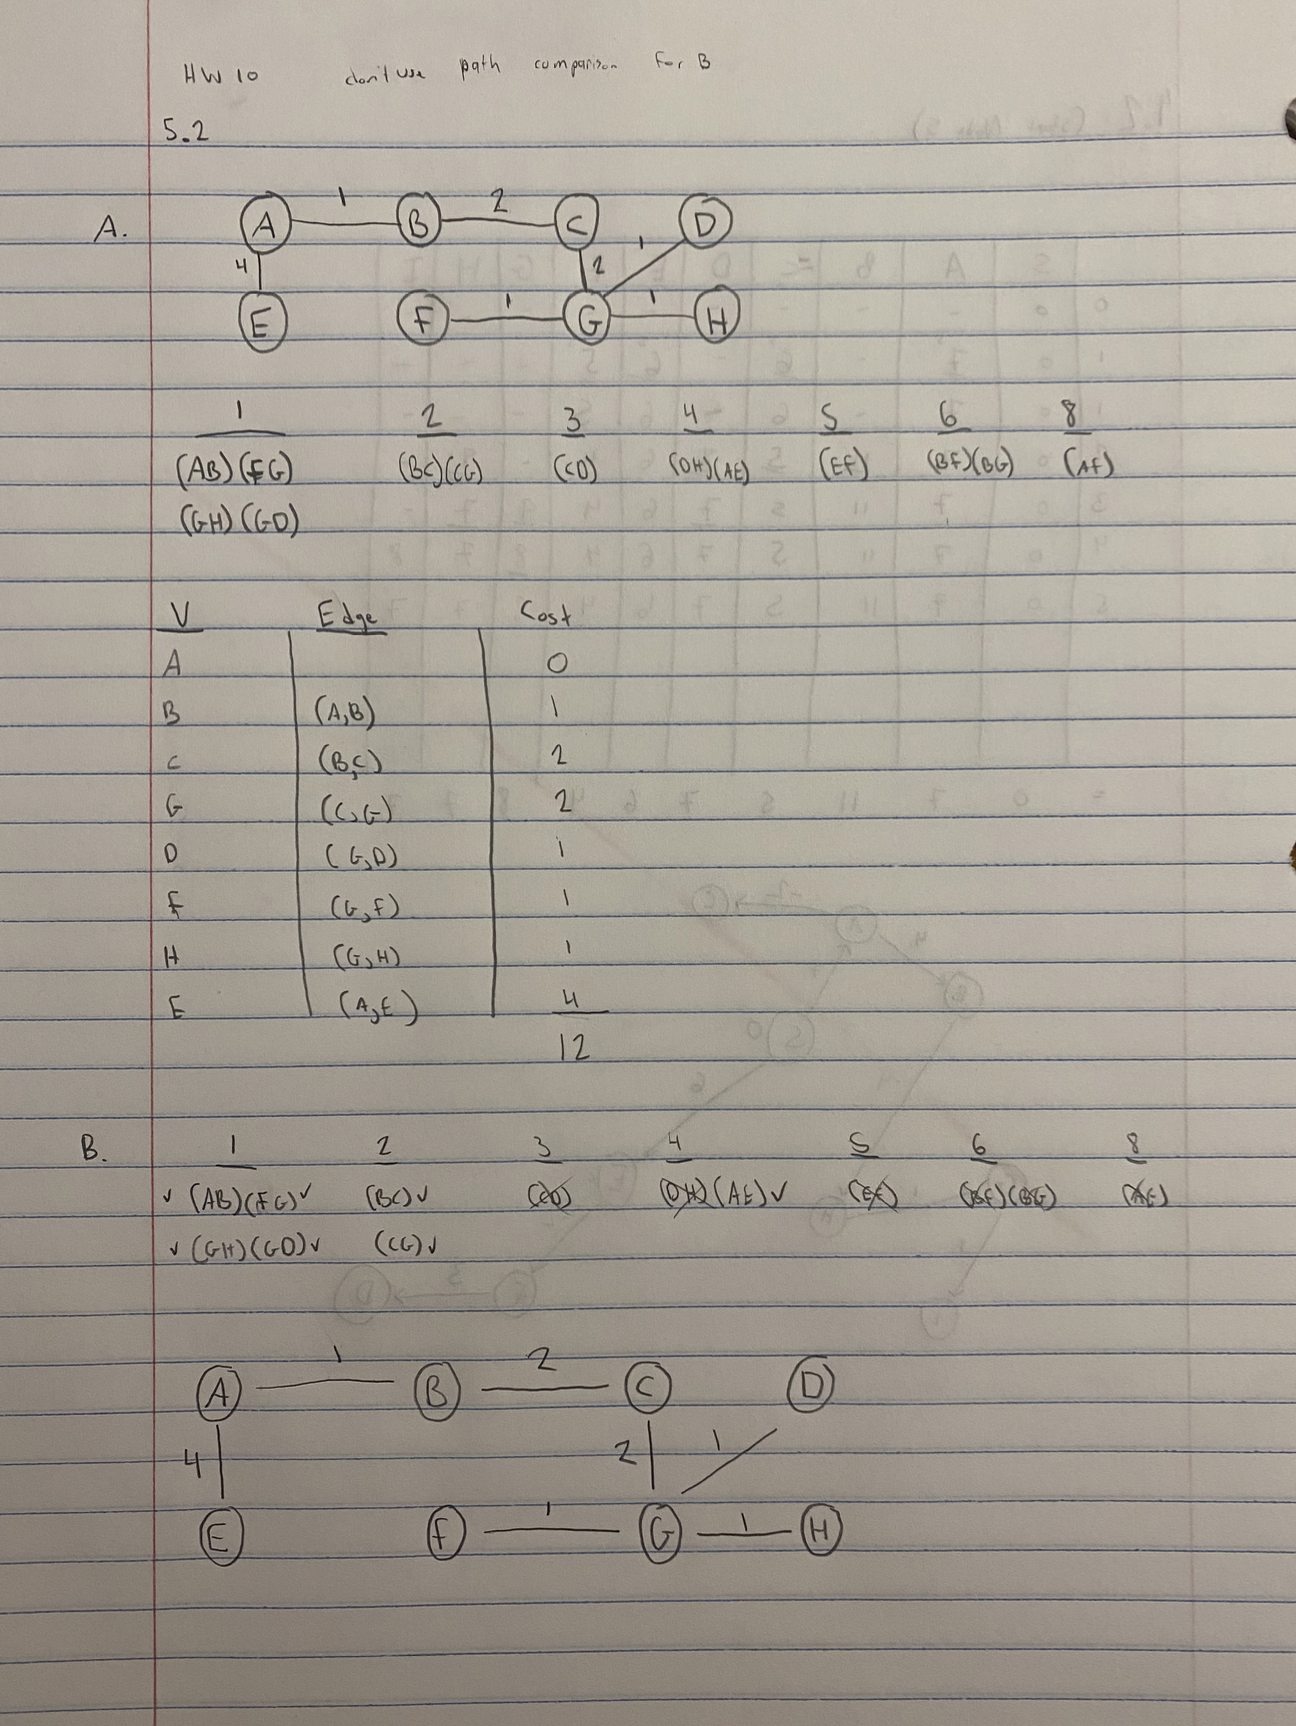 HW 10 don't use path comparison for B
5.2
A.
1 2
A B C D
4 2 1
E F G H
1 1
1 2 3 4 5 6 8
(AB)(FG) (BC)(CG) (CD) (DH)(AE) (EF) (BF)(BG) (AF)
(GH)(GD)
V Edge Cost
A 0
B (A,B) 1
C (B,C) 2
G (C,G) 2
D (G,D) 1
F (G,F) 1
H (G,H) 1
E (A,E) 4
12
B. 1 2 3 4 5 6 8
✓ (AB)(FG)✓ (BC)✓ (CD) (DH)(AE)✓ (EF) (BF)(BG) (AF)
✓ (GH)(GD)✓ (CG)✓
1 2
A B C D
4 2 1
E F G H
1 1